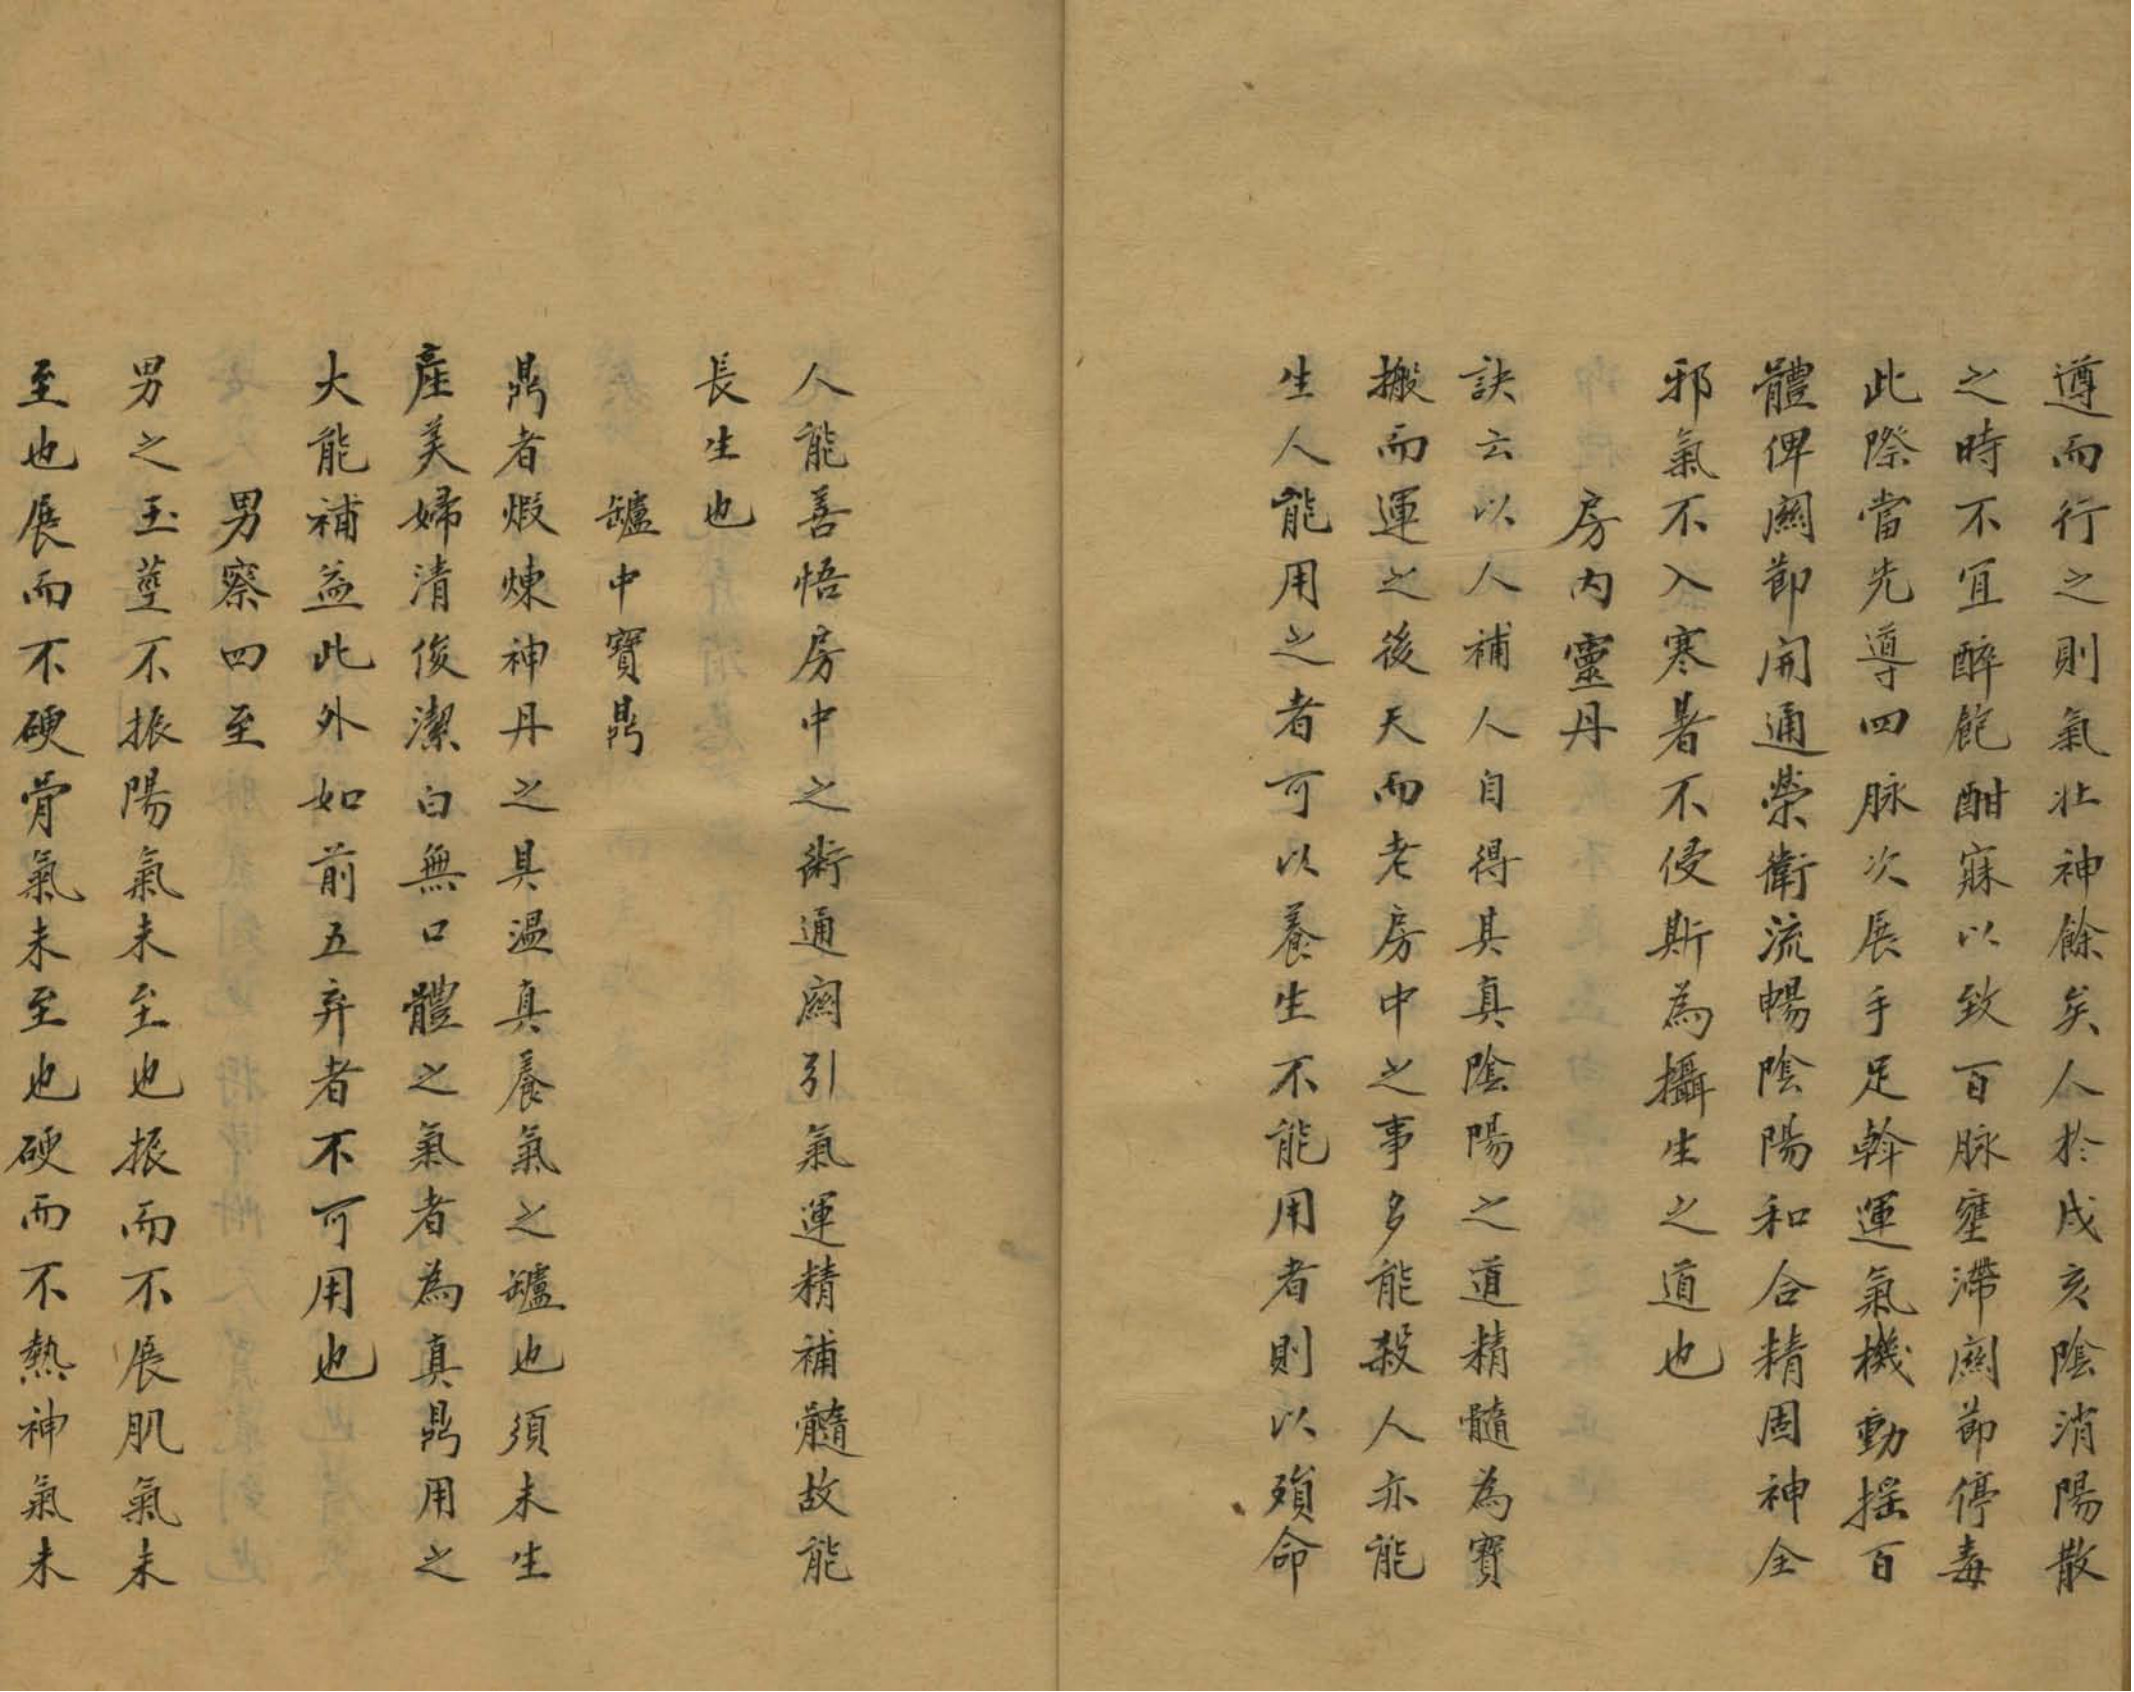 遵而行之則氣壯神餘矣人於戌亥陰消陽散
之時不宜醉飽酣寐以致百脉壅滯關節停毒
此際當先導四脉次展手足斡運氣機動搖百
體俾關節開通榮衛流暢陰陽和合精固神全
邪氣不入寒暑不侵斯為攝生之道也
房內靈丹
訣云以人補人自得其真陰陽之道精髓為寶
搬而運之後天而老房中之事多能殺人亦能
生人能用之者可以養生不能用者則以殞命
人能善悟房中之術通關引氣運精補髓故能
長生也
罏中寶鼎
鼎者煆煉神丹之具溫真養氣之罏也須未生
產美婦清俊潔白無口體之氣者為真鼎用之
大能補益此外如前五弃者不可用也
男察四至
男之玉莖不振陽氣未至也振而不展肌氣未
至也展而不硬骨氣未至也硬而不熱神氣未